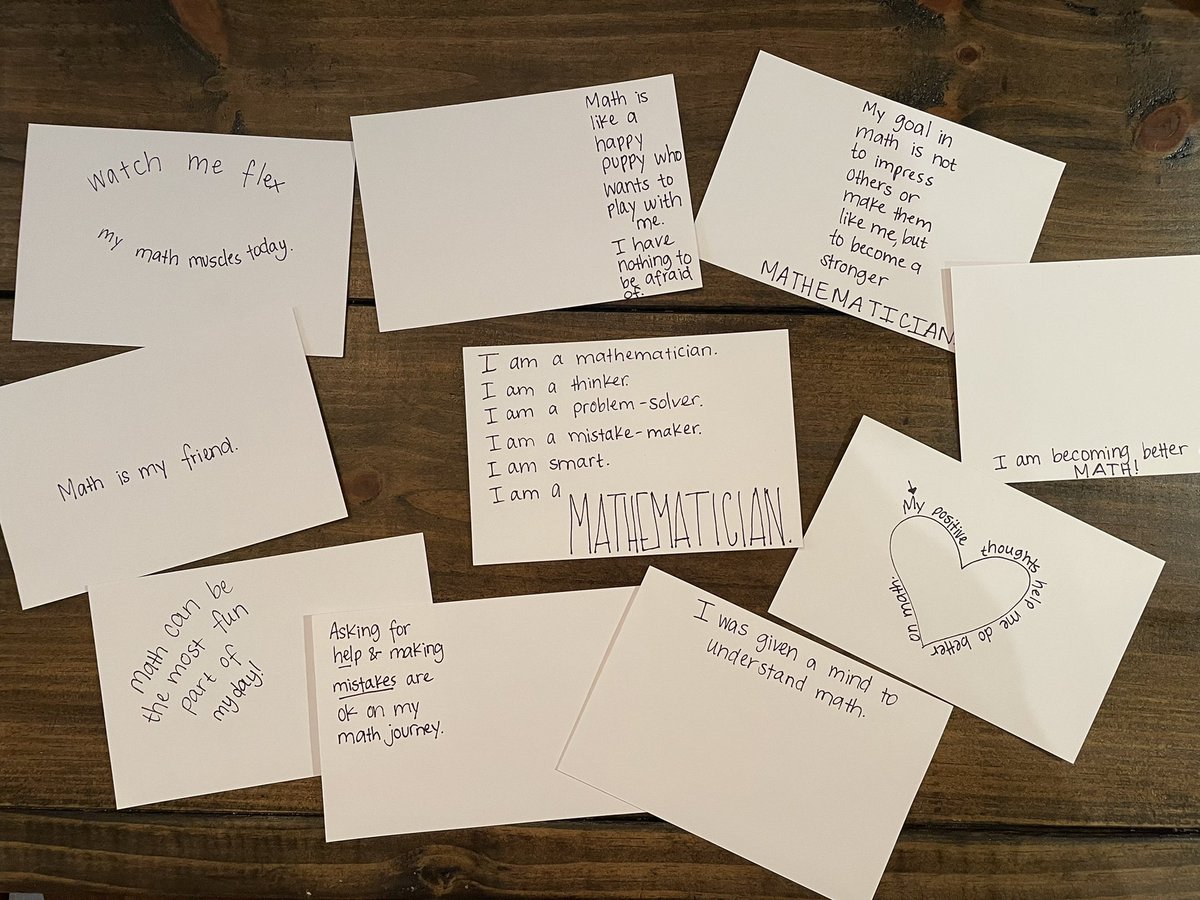 Watch me flex
my math muscles today.
Math is
like a
happy
puppy who
wants to
play with
me.
I have
nothing to
be afraid
of.
My goal in
math is not
to impress
others or
make them
like me, but
to become a
stronger
MATHEMATICIAN
Math is my friend.
I am a mathematician.
I am a thinker.
I am a problem-solver.
I am a mistake-maker.
I am smart.
I am a
MATHEMATICIAN.
I am becoming better
MATH!
math can be
the most fun
part of
my day!
Asking for
help & making
mistakes are
ok on my
math journey.
I was given a mind to
understand math.
My positive thoughts help me do better on math.